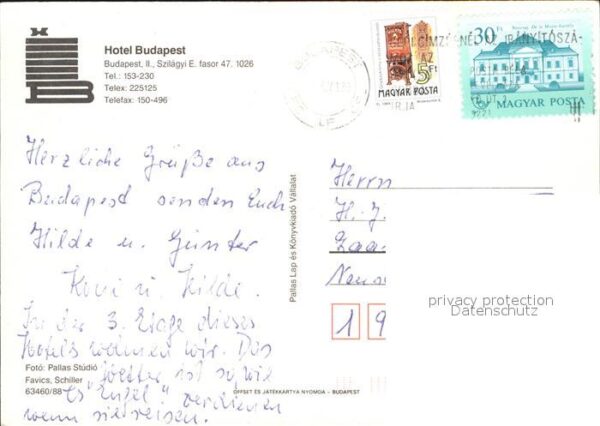 Hotel Budapest
Budapest, II., Szilágyi E. fasor 47. 1026
Tel.: 153-230
Telex: 225125
Telefax: 150-496
BUDAPEST
5Ft
MAGYAR POSTA
30Ft
MAGYAR POSTA
Herzliche Grüße aus
Budapest senden Euch
Hilde u. Günter
u. Hilde.
In der 3. Etage dieses
Hotels wohnen wir. Das
Wetter ist so, wie
es "Engel" verdienen
wenn sie reisen.
Fotó: Pallas Stúdió
Favics, Schiller
63460/88
Pallas Lap és Könyvkiadó Vállalat
OFFSET ÉS JÁTÉKKÁRTYA NYOMDA – BUDAPEST
Herrn
H.-J.
1 9
privacy protection
Datenschutz